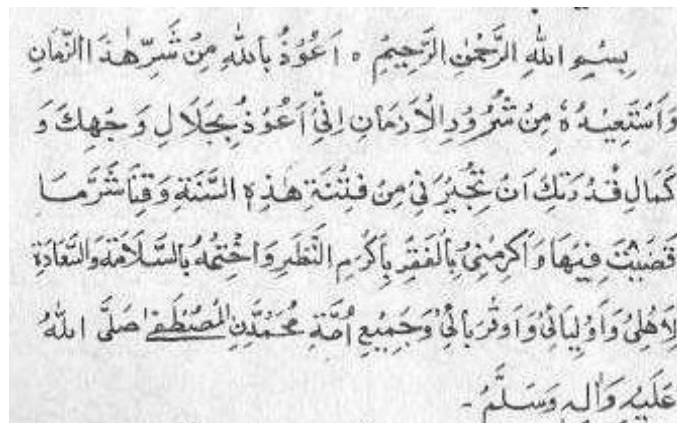 بِسْمِ اللهِ الرَّحْمٰنِ الرَّحِيْمِ ۰ اَعُوْذُ بِاللهِ مِنْ شَرِّ هٰذَا الزَّمَانِ
وَاَسْتَعِيْذُهٗ مِنْ شُرُوْرِ الْاَزْمَانِ اِنِّیْ اَعُوْذُ بِجَلَالِ وَجْهِكَ وَ
كَمَالِ قُدْرَتِكَ اَنْ تُجِيْرَنِیْ مِنْ فِتْنَةِ هٰذِهِ السَّنَةِ وَقِنَا شَرَّ مَا
قَضَيْتَ فِيْهَا وَاَكْرِمْنِیْ بِالْفَقْرِ بِاَكْرَمِ النَّظَرِ وَاخْتِمْهُ بِالسَّلَامَةِ وَالسَّعَادَةِ
لِاَهْلِیْ وَاَوْلِيَائِیْ وَاَقْرِبَائِیْ وَجَمِيْعِ اُمَّةِ مُحَمَّدِنِ الْمُصْطَفٰی صَلَّی اللهُ
عَلَيْهِ وَاٰلِهٖ وَسَلَّمَ ۔